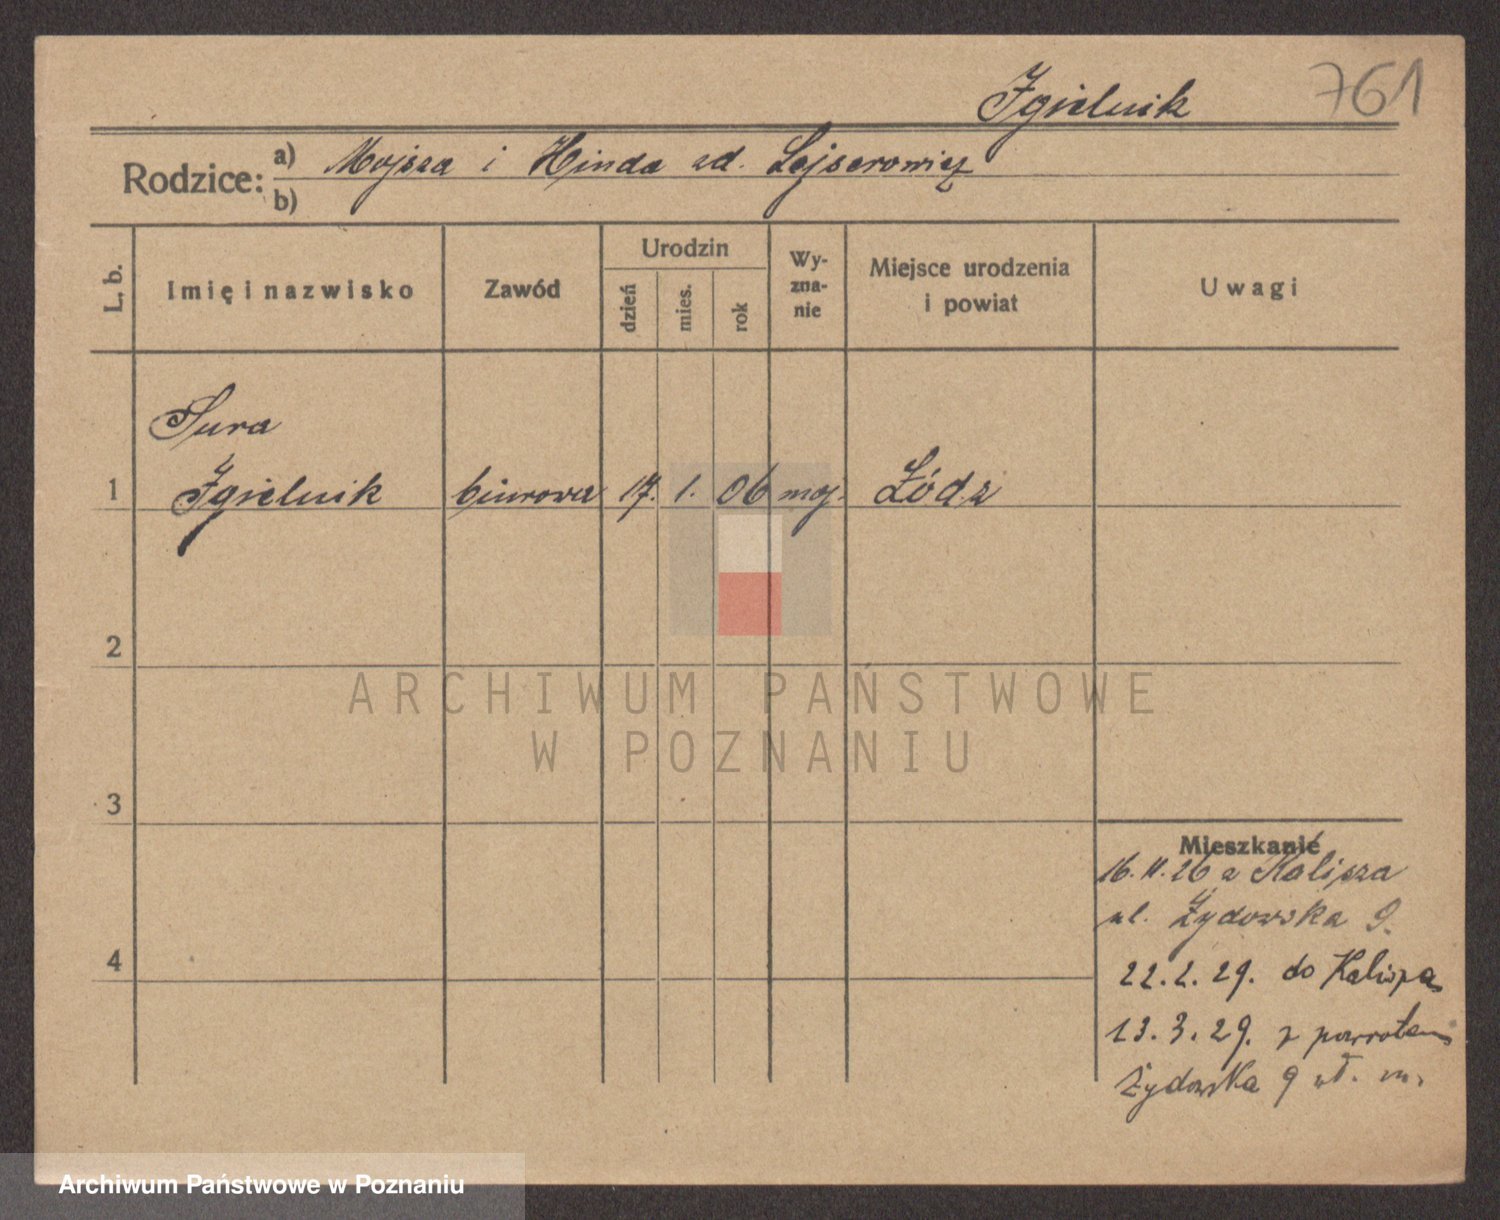 Igielnik 761
Rodzice: a) Mojsza i Hinda zd. Lejserowicz
b)
L. b. Imię i nazwisko Zawód Urodzin dzień mies. rok Wy-zna-nie Miejsce urodzenia i powiat Uwagi
Sura
1 Igielnik biurowa 17. 1. 06 moj. Łódz
2
ARCHIWUM PAŃSTWOWE
W POZNANIU
3
Mieszkanie
16.II.26 z Kalisza
ul. Żydowska 9.
4
22.2.29. do Kalisza
13.3.29. z powrotem
Żydowska 9
Archiwum Państwowe w Poznaniu